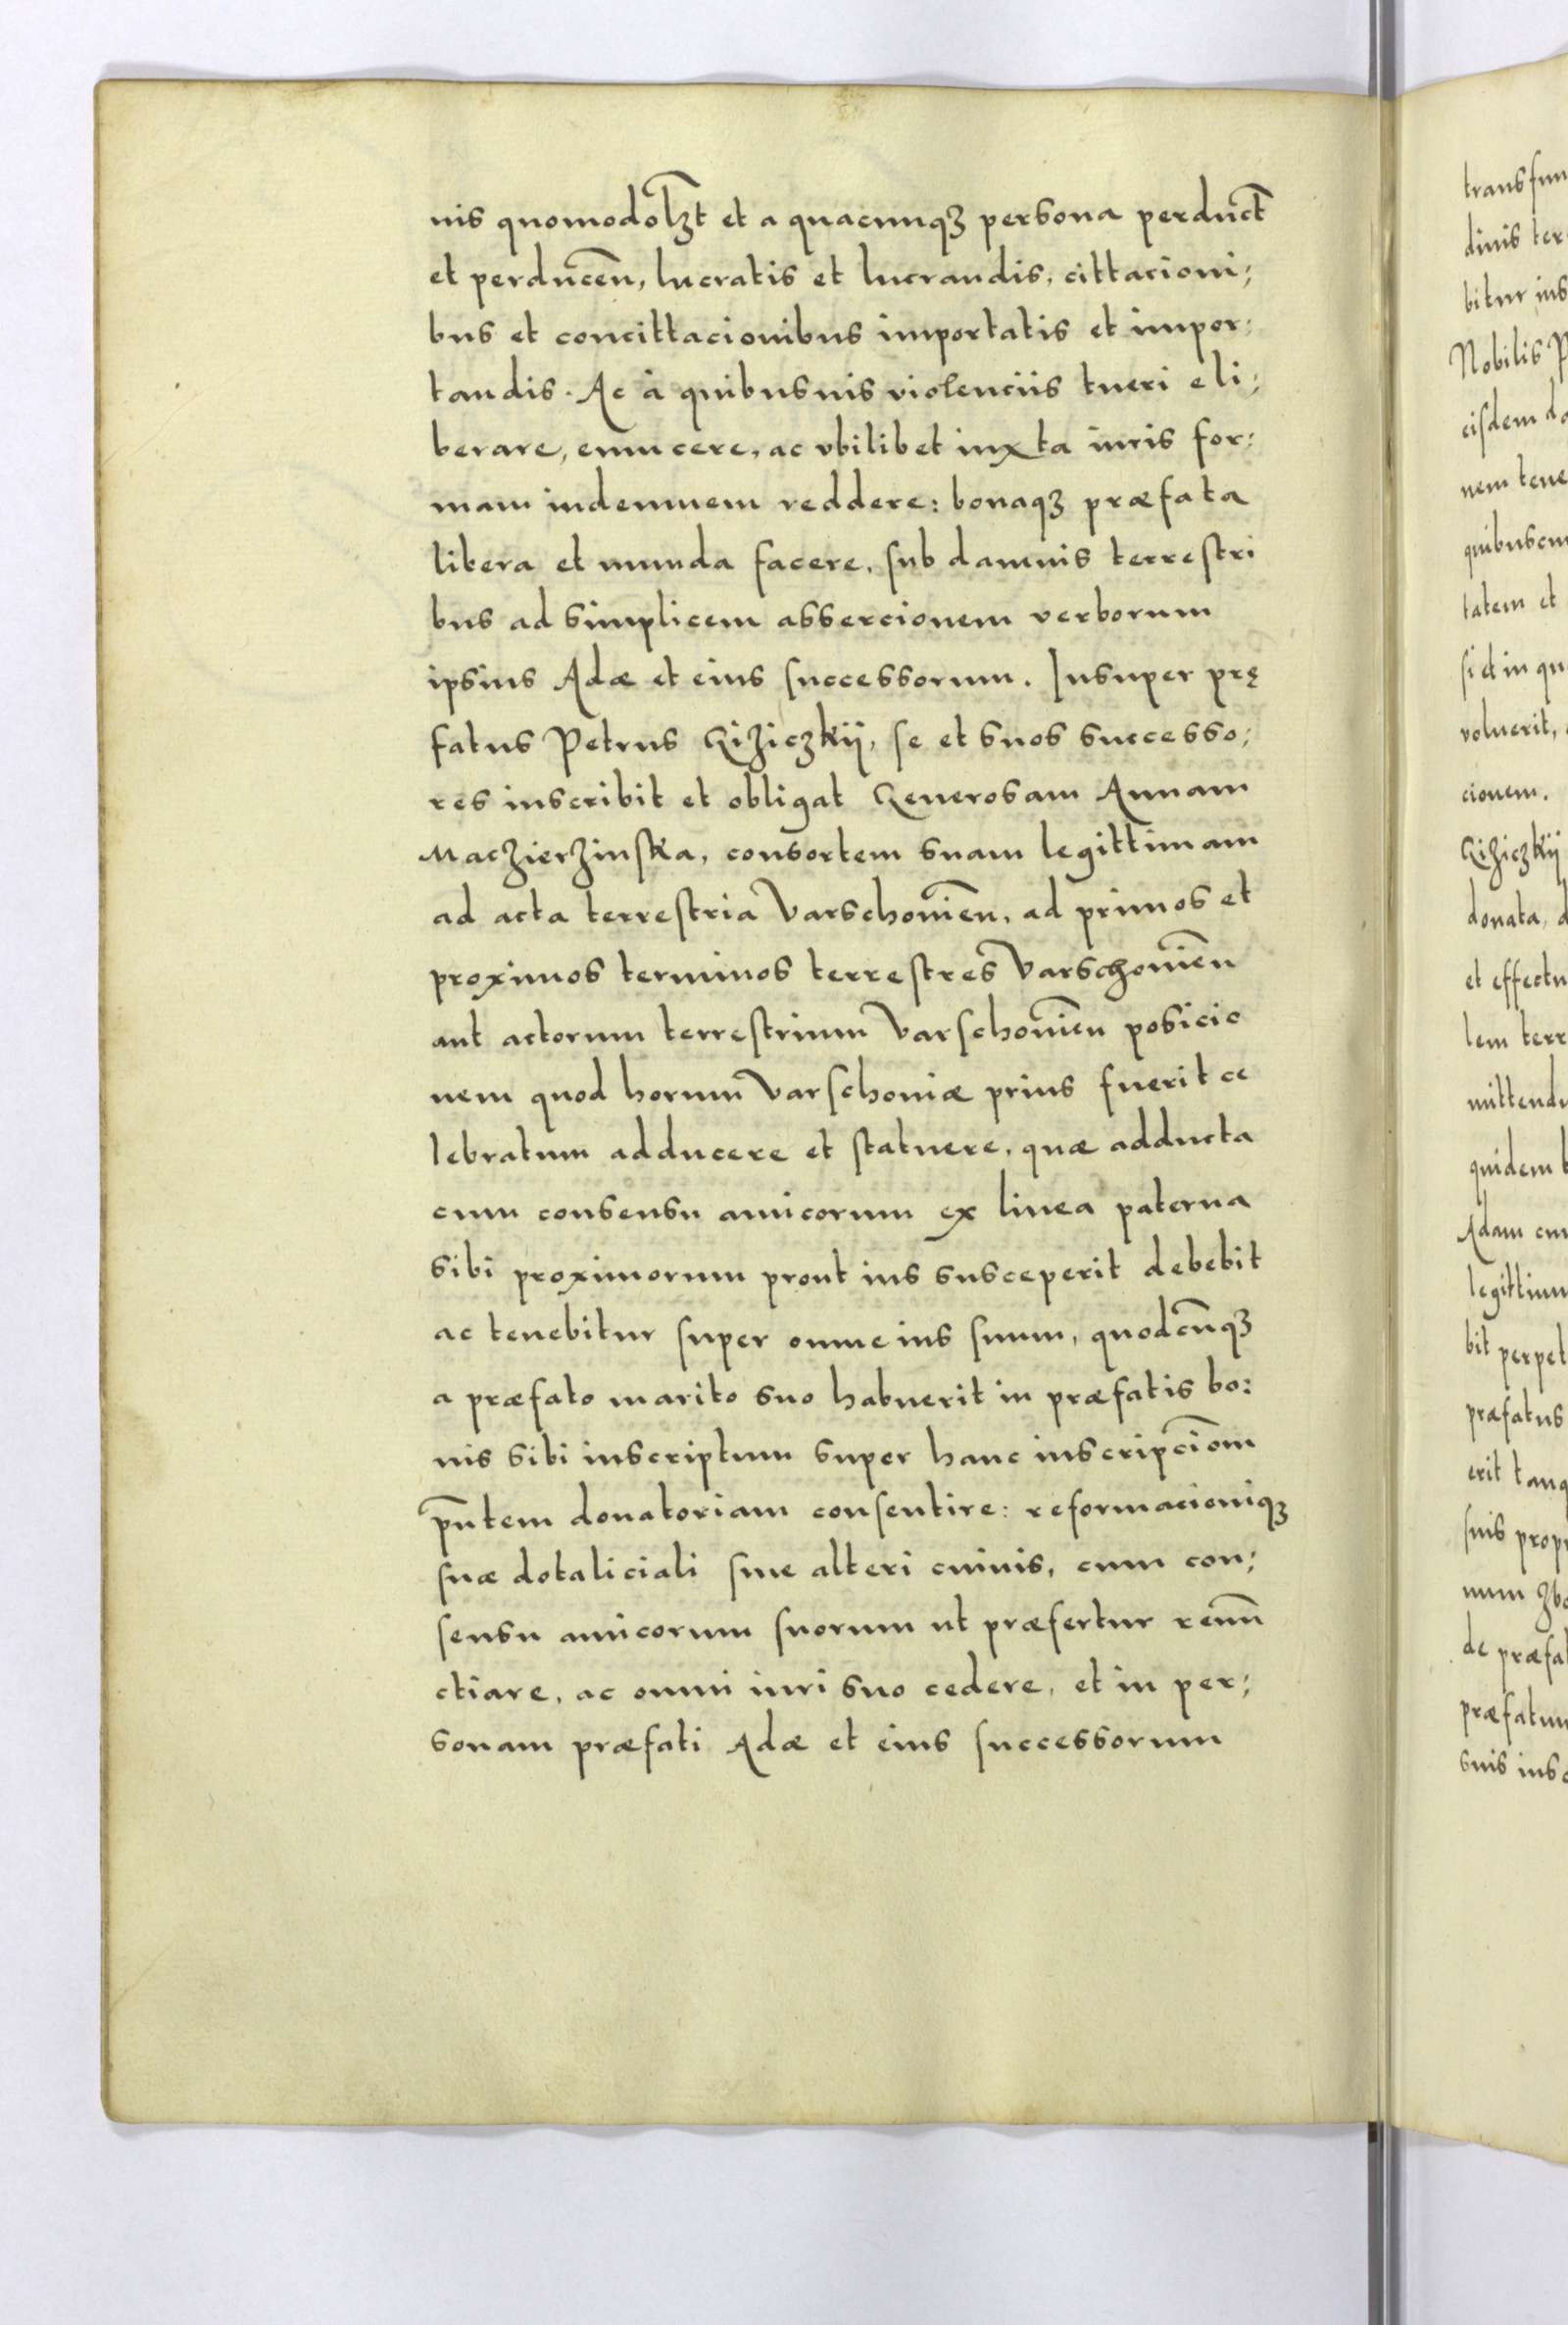 nis quomodolꝫt et a quacunqꝫ persona perduct̃
et perducen̄, lucratis et lucrandis, cittacioni;
bus et concittacionibus importatis et impor;
tandis. Ac à quibusuis violenciis tueri eli;
berare, euincere, ac vbilibet iuxta iuris for:
mam indemnem reddere: bonaqꝫ præfata
libera et munda facere, sub damnis terrestri
bus ad simplicem assercionem verborum
ipsius Adæ et eius successorum. Insuper prę
fatus Petrus Giziczkij, se et suos successo;
res inscribit et obligat Generosam Annam
Maczierzinska, consortem suam legittimam
ad acta terrestria Varschouien̄, ad primos et
proximos terminos terrestres Varschouien̄
aut actorum terrestrium Varschouien̄ posicio
nem quod horum Varschouiæ prius fuerit ce
lebratum adducere et statuere, quæ adducta
cum consensu amicorum ex linea paterna
sibi proximorum prout ius susceperit debebit
ac tenebitur super omne ius suum, quodcūqꝫ
a præfato marito suo habuerit in præfatis bo:
nis sibi inscriptum super hanc inscripcīom
pn̄tem donatoriam consentire: reformacioniqꝫ
suæ dotaliciali siue alteri cuiuis, cum con;
sensu amicorum suorum ut præfertur renun̄
ctiare, ac omni iuri suo cedere, et in per;
sonam præfati Adæ et eius successorum
transfun
dinis ter
bitur ins
Nobilis P
eisdem do
nem tene
quibuscun
tatem et
si et in qu
voluerit,
cionem.
Giziczkij
donata, d
et effectu
lem terr
mittendu
quidem b
Adam cum
legittim
bit perpet
præfatus
erit tanq
suis propr
num zbo
de præfat
præfatum
suis insc